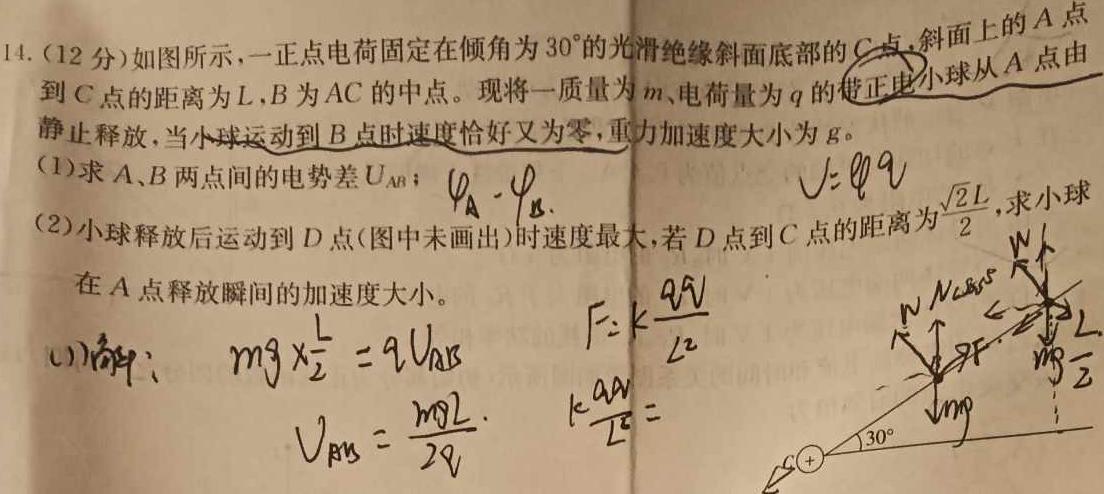 14.(12分)如图所示,一正点电荷固定在倾角为30°的光滑绝缘斜面底部的C点,斜面上的A点
到C点的距离为L,B为AC的中点。现将一质量为m、电荷量为q的带正电小球从A点由
静止释放,当小球运动到B点时速度恰好又为零,重力加速度大小为g。
(1)求A、B两点间的电势差U_AB;
φ_A - φ_B.
U=φq
(2)小球释放后运动到D点(图中未画出)时速度最大,若D点到C点的距离为√2L/2,求小球
在A点释放瞬间的加速度大小。
(1)解: mg×L/2 = qU_AB
F=k qq/L²
U_AB = mgL/2q.
k qq/L² =
N
N
F
mg
mg
L/2
C
+
30°